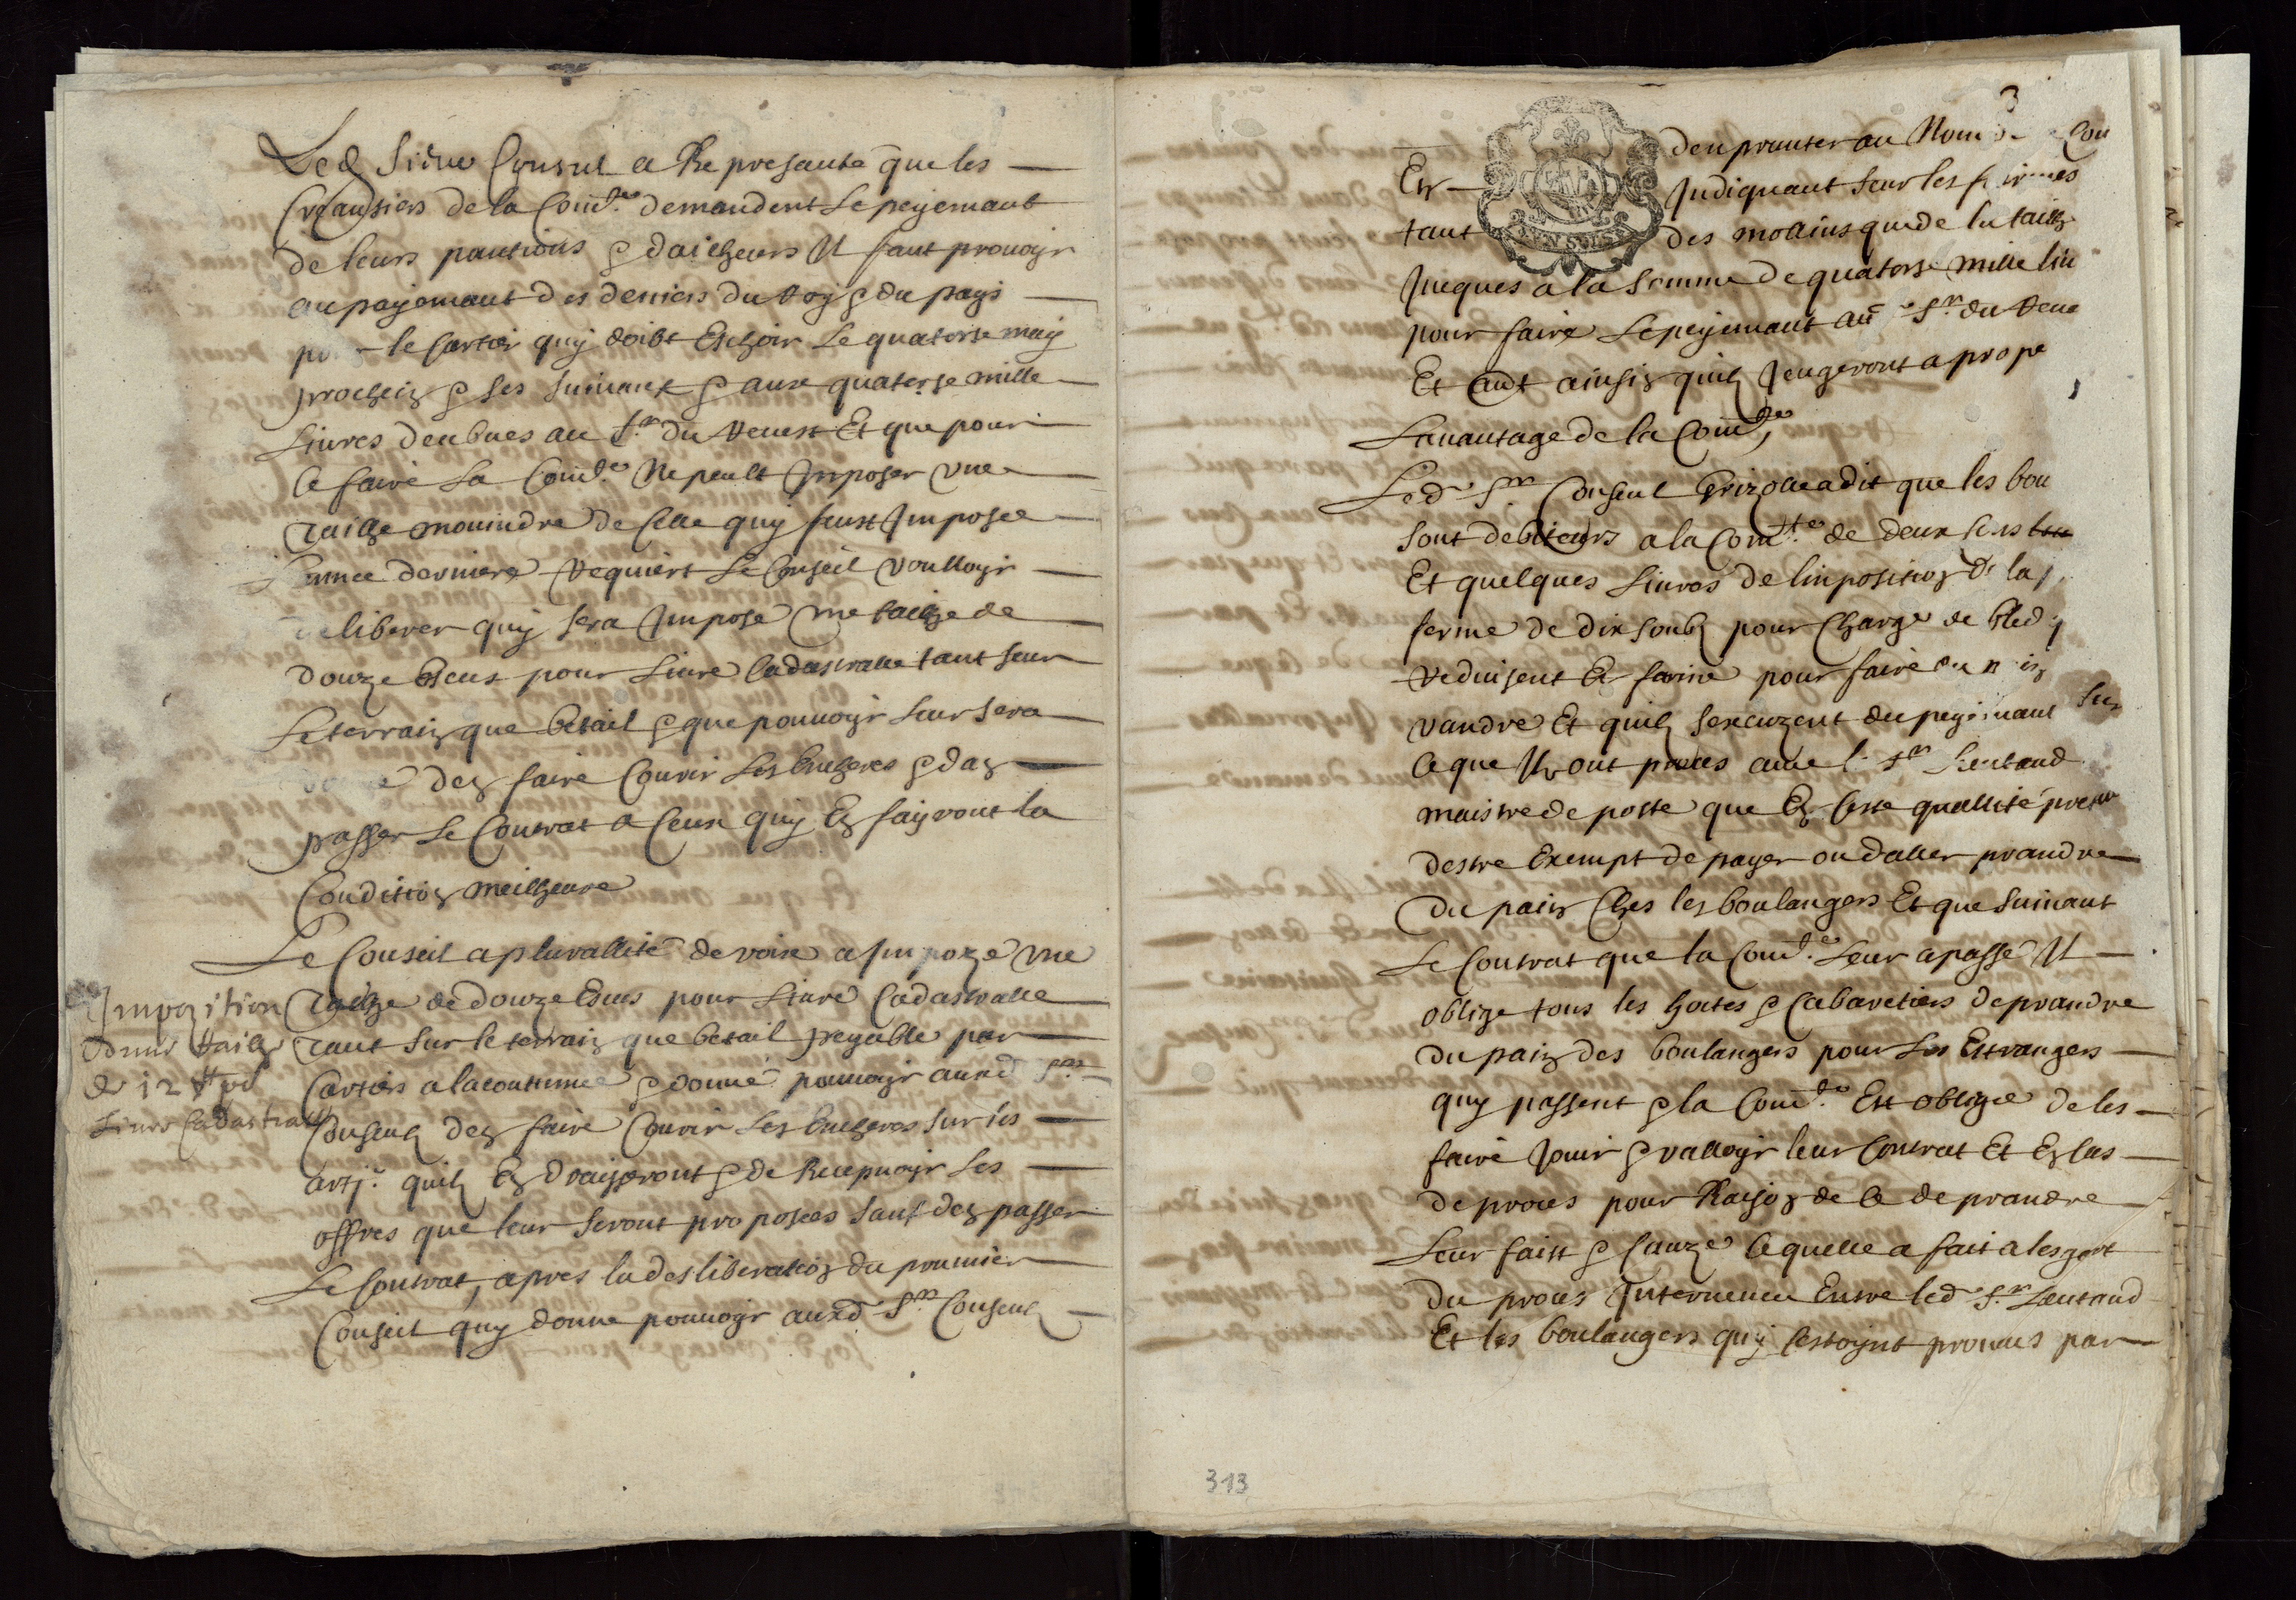 Led Sieur Consul a Represanté que les
Creansiers de la Com.te demandent Le peyemant
de leurs pantions & dailheurs Il faut prouvoyr
au payemant des deniers du Roy & du pays
le cartier quy doibt Eschoir Le quatorse may
prochein & les suivant & aux quatorse mille
Livres deubues au Sr du Revest Et que pour
Ce faire La Com.te Ne peult Imposer une
Tailhe mouindre de Celle quy feust Imposée
l'année derniere Requiert Le Conseil voulloyr
deliberer quy sera Imposé une tailhe de
Douze Escus pour Livre Cadastralle tant sur
Le terrain que betail & que pouvoyr leur sera
donné den faire Courir Les Encheres & dan
passer Le Contrat a Ceux quy En fayront la
Condition meilheure
Le Conseil a plurallité de voix a Impozé une
Tailhe de Douze Escus pour Livre Cadastralle
Tant sur le terrain que betail peyable par
Cartiers a la coutumée & donné pouvoyr auxd Srs
Consculz den faire Courir Les Encheres sur les
artj. quilz En draisseront & de Recepvoyr Les
offres que leur seront proposées sauf den passer
Le Contrat, apres la desliberation du prumier
Conseil quy donne pouvoyr auxd Srs Consculz
Impozition
d'une tailhe
de 12 # pr
Livre Cadastralle
3
denprunter au Nom de Com
Et Indiquant sur les fermes
tant des mollins que de la tailhe
Jucques a la Somme de quatorse mille liv
pour faire Le peyemant au Sr du Reve
Et aut ainsin quilz Jeugeront a prope
Lavantage de la Com.te
Led Sr Conseul Grizolle a dit que les bou
sont debiteurs a la Com.te de deux sens
Et quelques Livres de linposition de la
ferme de dix soubz pour Charge de bled
Reduisent En farine pour faire du pain
vandre Et quilz sexcuzent du peyemant sur
Ce que Ilz ont proces avec le Sr Lieutaud
maistre de poste que En Ceste quallité pretan
destre Exempt de payer ou daller prandre
Du pain Ches les boulangers Et que suivant
Le Contrat que la Com.te Leur a passé Il
oblige tous les hostes & Cabaretiers de prandre
du pain des boulangers pour Les Estrangers
quy passent & la Com.te Est obligée de les
faire Jouir & valloyr leur Contrat Et En cas
de proces pour Raison de Ce de prandre
Leur faist & Cauze Ce quelle a fait a lesgart
du proces Intervenu Entre led Sr Lieutaud
Et les boulangers quy sestoynt prouvus par
313